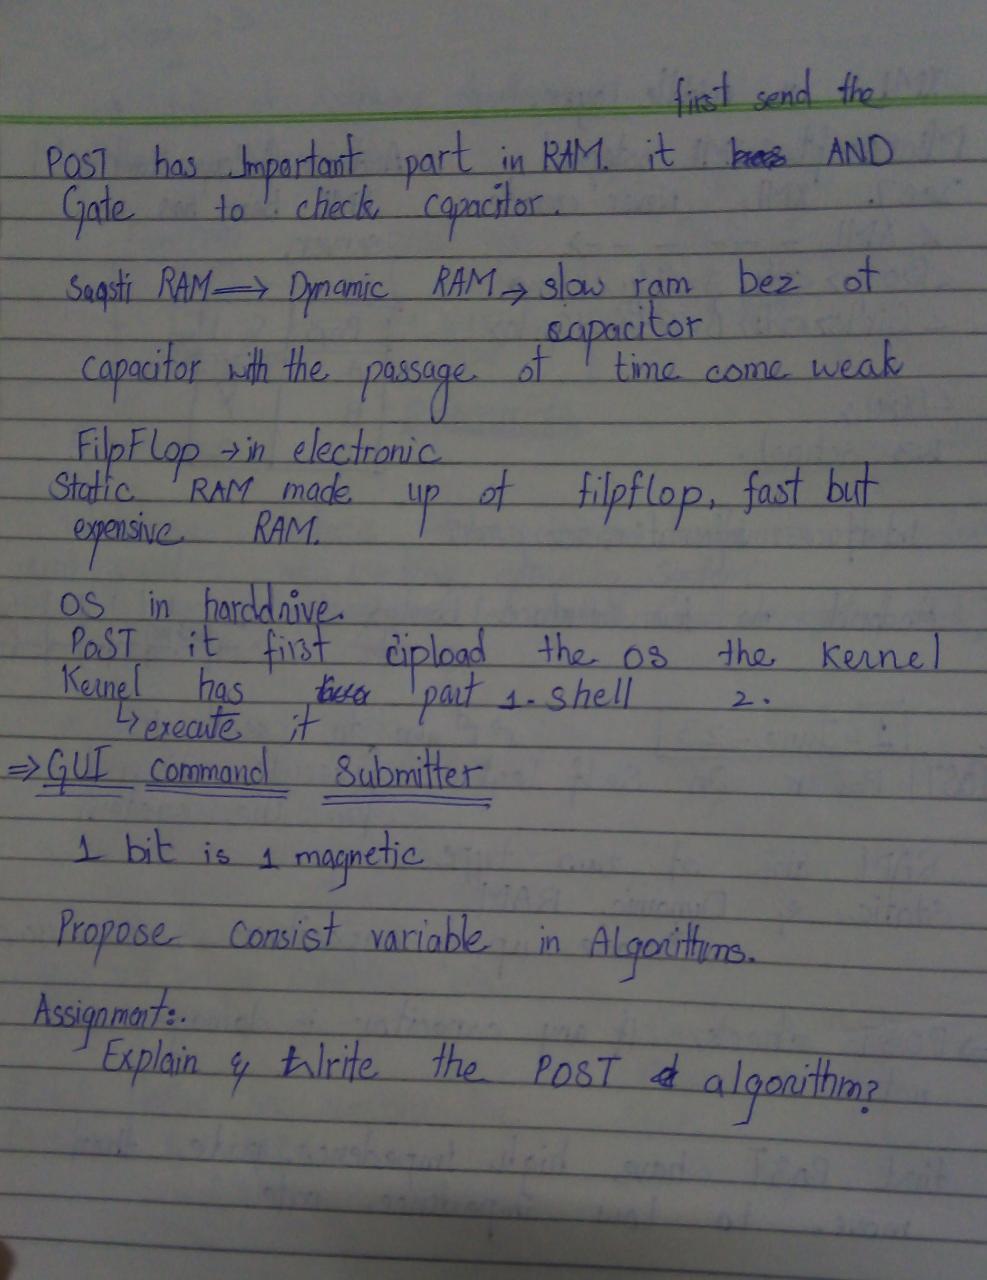 first send the
POST has Important part in RAM. it AND
Gate to check capacitor.
Saqsti RAM ⟹ Dynamic RAM → slow ram bez of
capacitor
capacitor with the passage of time come weak
FilpFlop → in electronic
Static RAM made up of filpflop, fast but
expensive RAM.
OS in harddrive.
PosT it first the os the Kernel
Kernel has part 1. shell 2.
↳ execute it
⇒ GUI Command Submitter
1 bit is 1 magnetic
Propose consist variable in Algorithms.
Assignment:.
Explain & Write the POST algorithm?